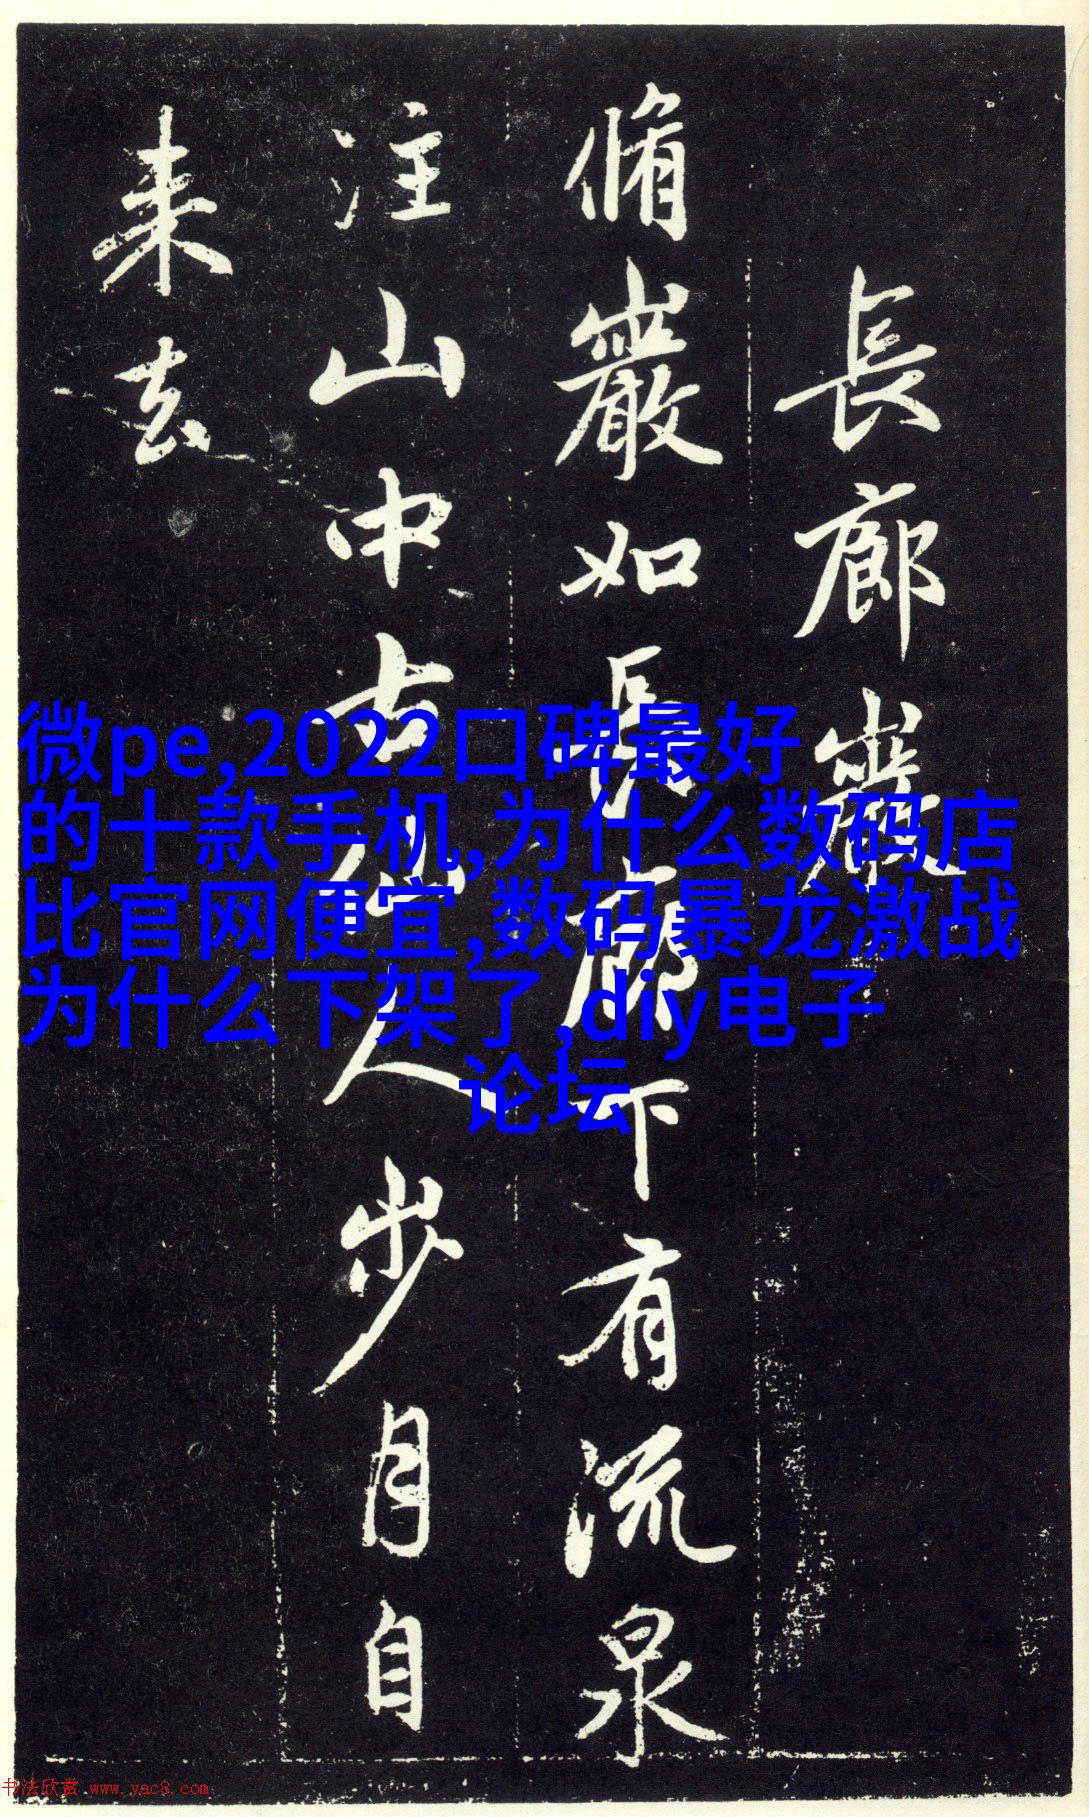 長廊巖
脩巖如長廊下有流泉
注山中古仙人步月自
来去
微pe,2022口碑最好
的十款手机,为什么数码店
比官网便宜,数码暴龙激战
为什么下架了,diy电子
论坛
书法欣赏 www.yac8.com